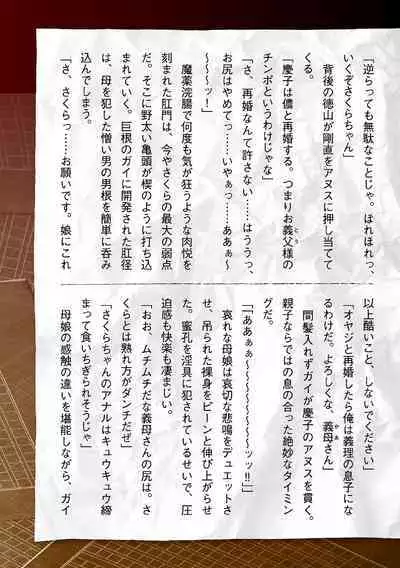 「逆らっても無駄なことじゃ。ほれほれっ、
いくぞさくらちゃん」
背後の徳山が剛直をアヌスに押し当てて
くる。
「慶子は儂と再婚する。つまりお義父様の
チンポというわけじゃな」
「さ、再婚なんて許さない……はううっ、
お尻はやめてっ……いやぁっ……ああぁ～
～～～ッ！」
魔薬浣腸で何度も気が狂うような肉悦を
刻まれた肛門は、今やさくらの最大の弱点
だ。そこに野太い亀頭が楔のように打ち込
まれていく。巨根のガイに開発された肛径
は、母を犯した憎い男の男根を簡単に呑み
込んでしまう。
「さ、さくらっ……お願いです。娘にこれ
以上酷いこと、しないでください」
「オヤジと再婚したら俺は義理の息子にな
るわけだ。よろしくな、義母さん」
間髪入れずガイが慶子のアヌスを貫く。
親子ならではの息の合った絶妙なタイミン
グだ。
「「ああぁぁ～～～～～～～ッッ!!」
哀れな母娘は哀切な悲鳴をデュエットさ
せ、吊られた裸身をビーンと伸び上がらせ
た。蜜孔を淫具に犯されているせいで、圧
迫感も快楽も凄まじい。
「おお、ムチムチだな義母さんの尻は。さ
くらとは熟れ方がダンチだぜ」
「さくらちゃんのアナルはキュウキュウ締
まって食いちぎられそうじゃ」
母娘の感触の違いを堪能しながら、ガイ